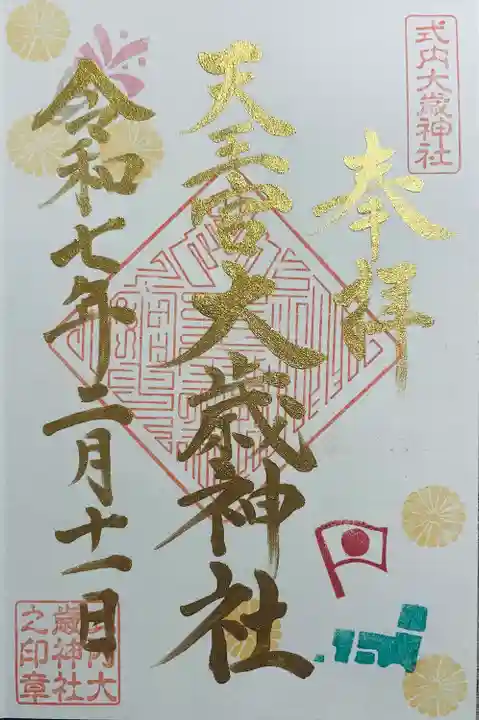 式内大歳神社
奉拝
天王宮大歳神社
令和七年二月十一日
式内大
歳神社
之印章